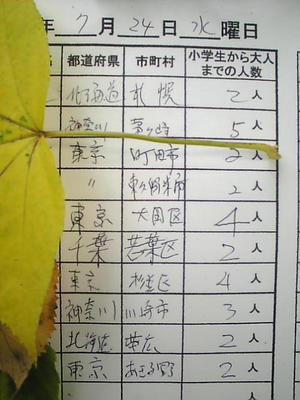 年 7月24日 水曜日
都道府県 市町村 小学生から大人までの人数
北海道 札幌 2人
神奈川 茅ヶ崎 5人
東京 町田市 2人
〃 東久留米市 2人
東京 大田区 4人
千葉 若葉区 2人
東京 杉並区 4人
神奈川 川崎市 3人
北海道 帯広 2人
東京 あきる野 2人